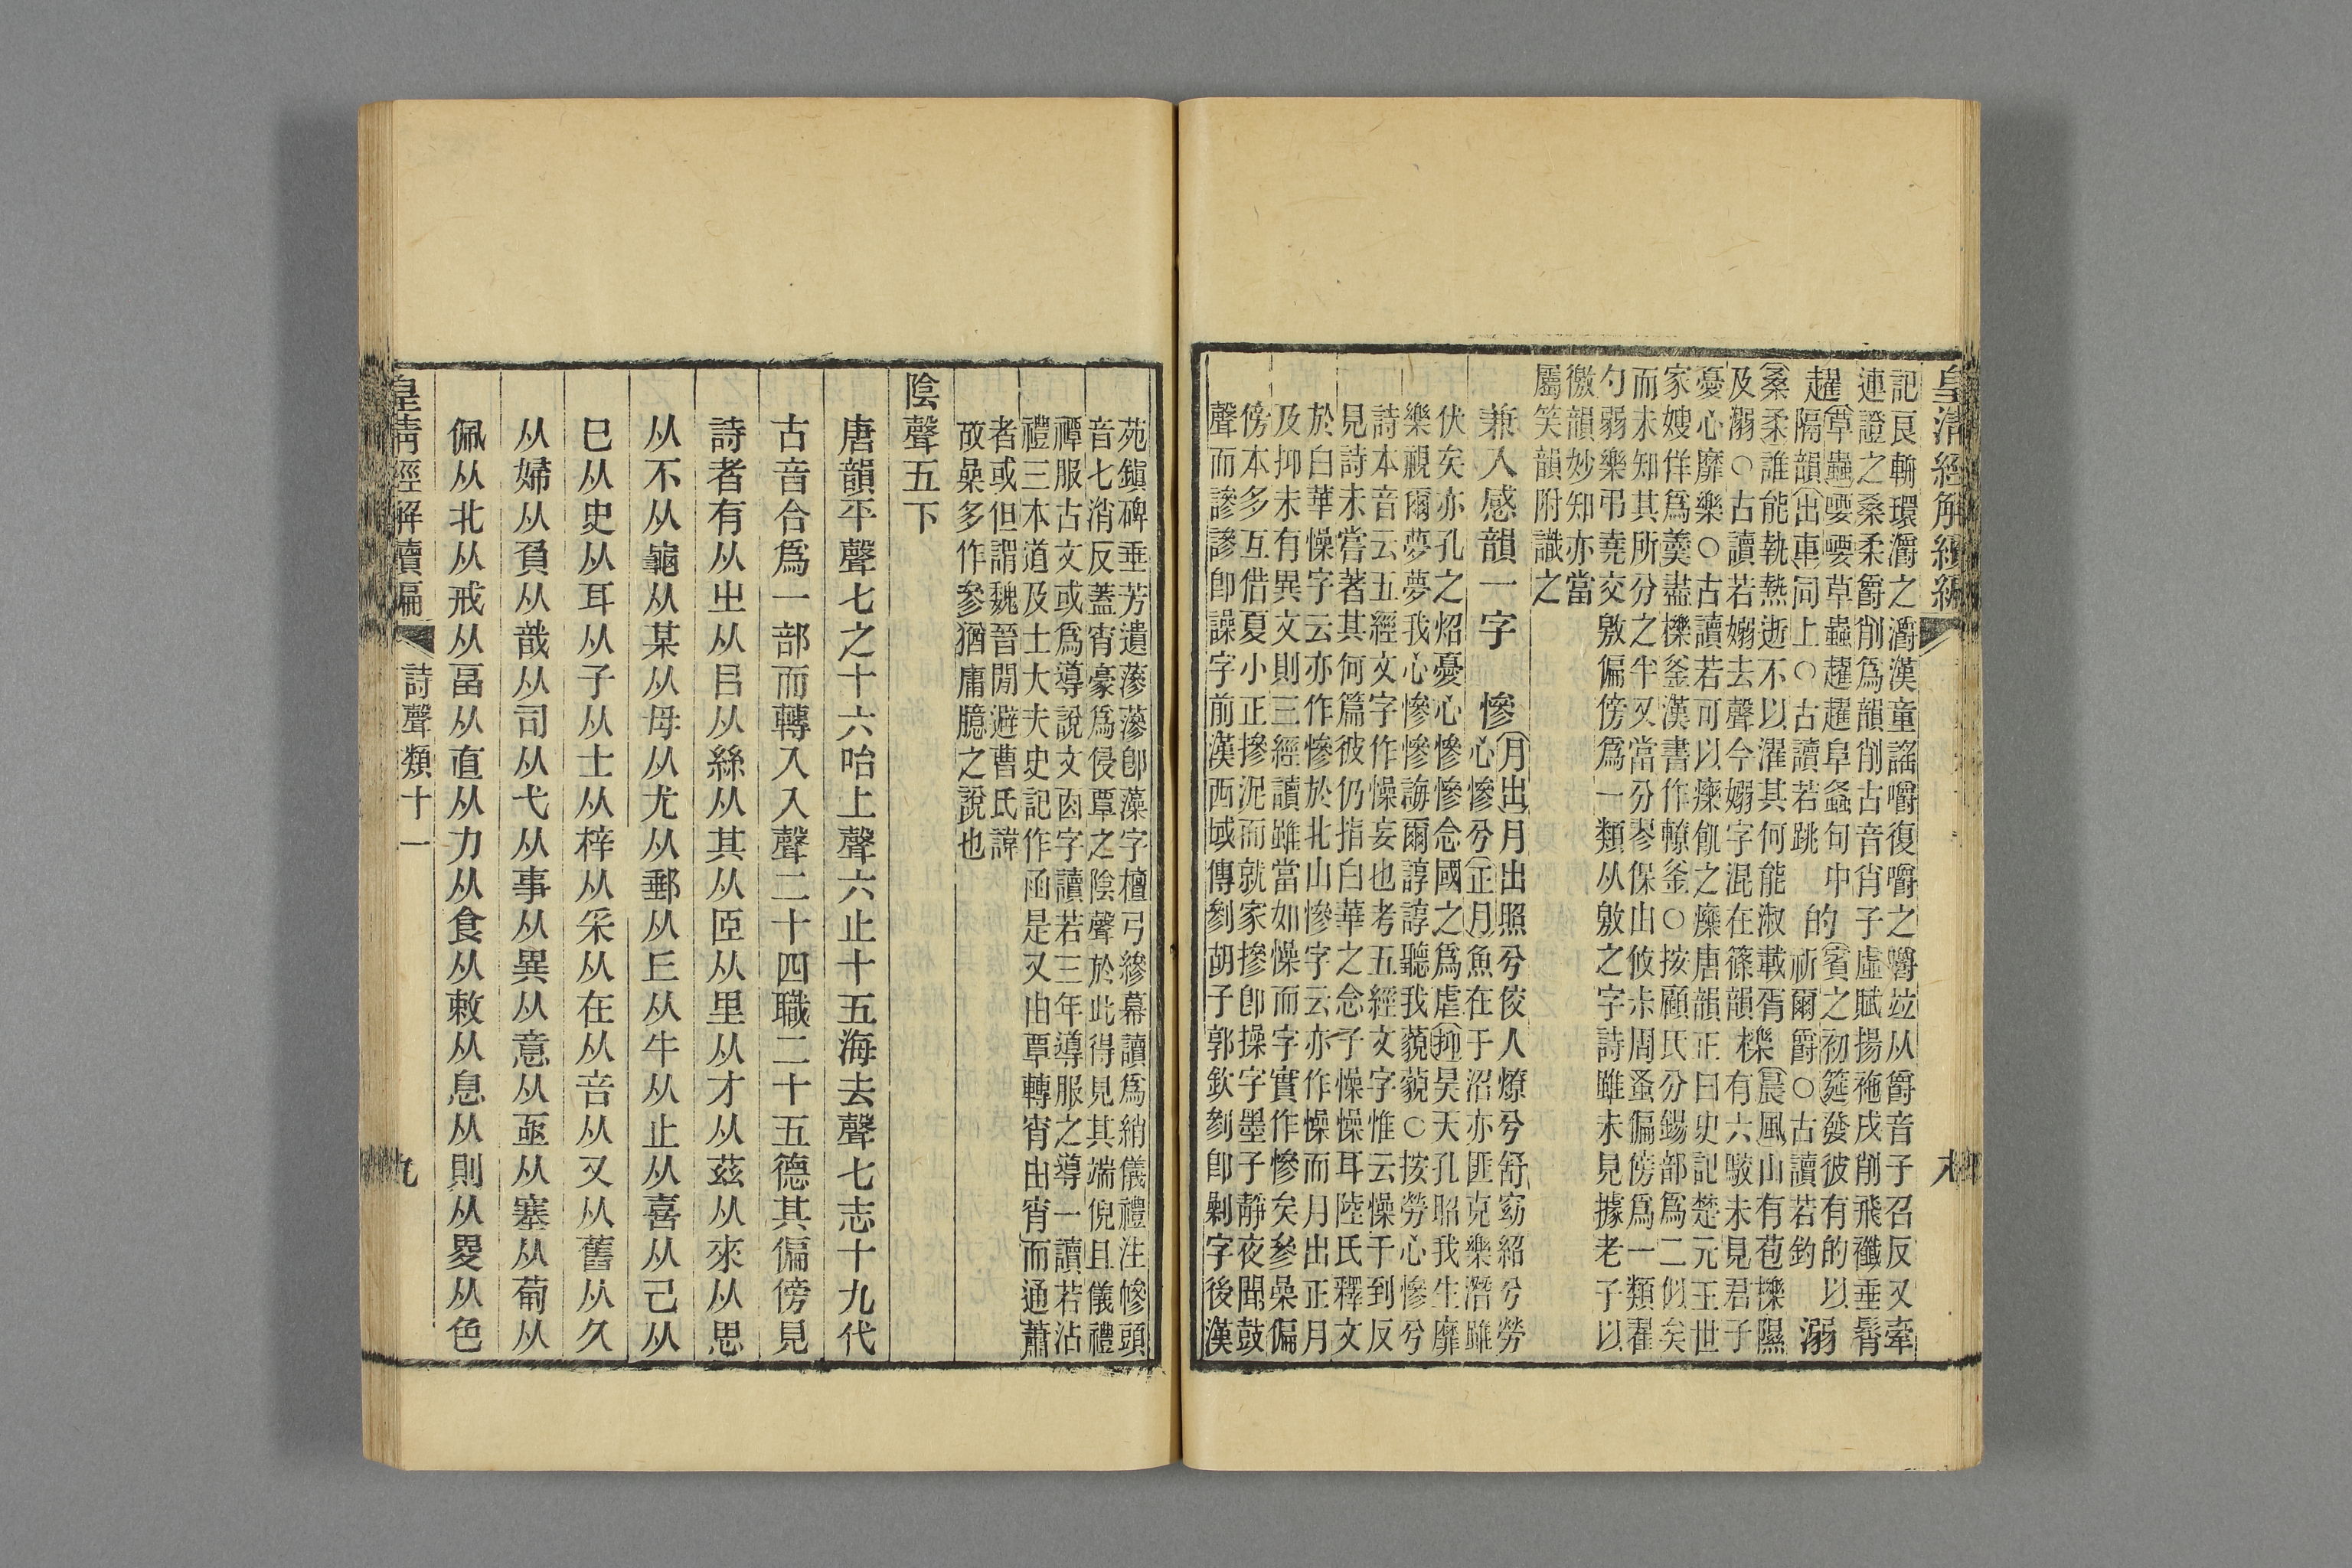 皇清經解續編
記良輈環灂之灂漢童謠嚼復嚼之嚼竝从爵音子召反又牽
連證之桑柔爵削爲韻削古音肖子虛賦揚袘戌削飛襳垂髾
趯草蟲喓喓草蟲趯趯阜螽句中的賓之初筵發彼有的以
隔韻出車同上○古讀若跳祈爾爵○古讀若釣溺
桑柔誰能執熱逝不以濯其何能淑載胥
及溺○古讀若嫋去聲今嫋字混在篠韻櫟晨風山有苞櫟隰
有六駮未見君子
憂心靡樂○古讀若可以療飢之療唐韻正曰史記楚元王世
家嫂佯爲羹盡櫟釜漢書作轑釜○按顧氏分錫部爲二似矣
而未知其所分之半又當分岑保由攸未周蚤偏傍爲一類翟
勺弱樂弔堯交敫偏傍爲一類从敫之字詩雖未見據老子以
徼韻妙知亦當
屬笑韻附識之
兼入感韻一字
慘月出月出照兮佼人燎兮舒窈紹兮勞
心慘兮正月魚在于沼亦匪克樂潛雖
伏矣亦孔之炤憂心慘慘念國之爲虐抑昊天孔昭我生靡
樂視爾夢夢我心慘慘誨爾諄諄聽我藐藐○按勞心慘兮
詩本音云五經文字作懆妄也考五經文字惟云懆千到反
見詩未嘗著其何篇彼仍指白華之念子懆懆耳陸氏釋文
於白華懆字云亦作慘於北山慘字云亦作懆而月出正月
及抑未有異文則三經讀雖當如懆而字實作慘矣參喿偏
傍本多互借夏小正摻泥而就家摻卽操字墨子靜夜聞鼓
聲而謲謲卽譟字前漢西域傳劉胡子郭欽劉卽剿字後漢
苑鎭碑垂芳遺蔘蔘卽藻字檀弓縿幕讀爲綃儀禮注幓頭
音七消反蓋宵豪爲侵覃之陰聲於此得見其端倪且儀禮
禫服古文或爲導說文㐁字讀若三年導服之導一讀若沾
禮三本道及士大夫史記作㐁是又由覃轉宵由宵而通蕭
者或但謂魏晉閒避曹氏諱
故喿多作參猶庸臆之說也
陰聲五下
唐韻平聲七之十六咍上聲六止十五海去聲七志十九代
古音合爲一部而轉入入聲二十四職二十五德其偏傍見
詩者有从㞢从㠯从絲从其从𦣞从里从才从茲从來从思
从不从龜从某从母从尤从郵从丘从牛从止从喜从己从
巳从史从耳从子从士从梓从采从在从音从又从舊从久
从婦从負从戠从司从弋从事从異从意从亟从塞从葡从
佩从北从戒从畐从直从力从食从敕从息从則从畟从色
皇清經解續編
詩聲類十一
九